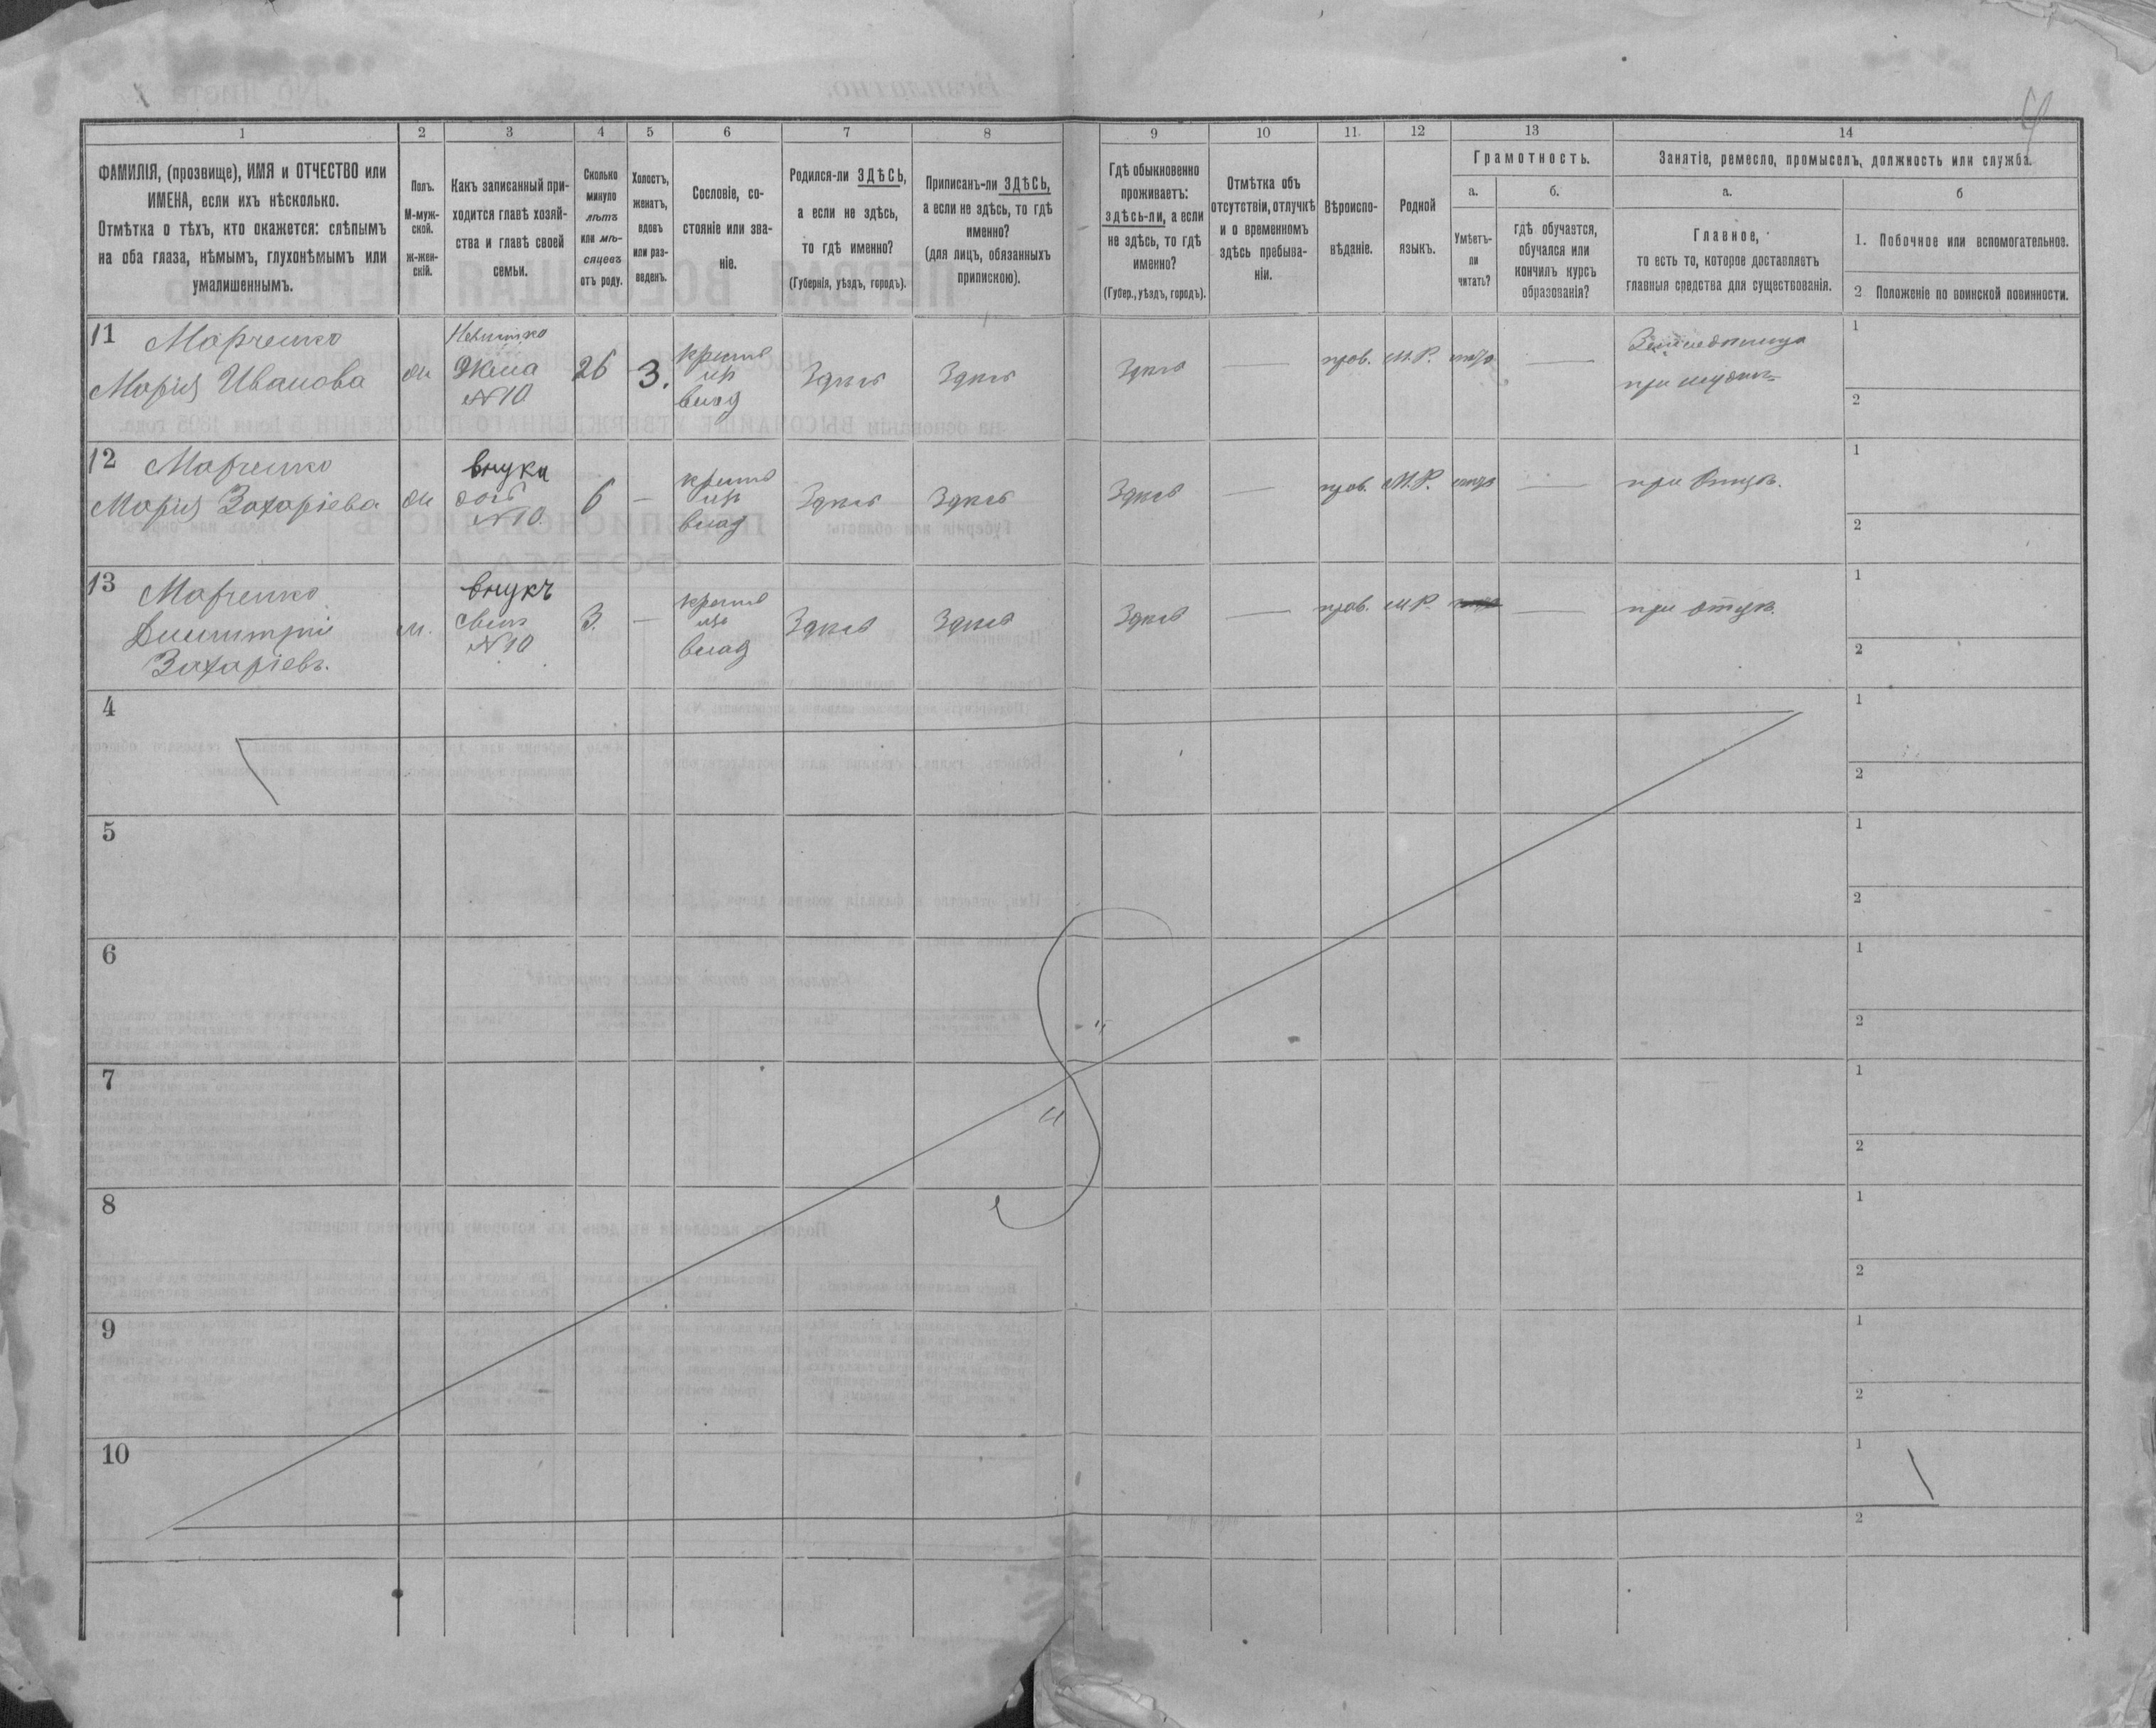 4
1 2 3 4 5 6 7 8 9 10 11. 12 13 14
ФАМИЛІЯ, (прозвище), ИМЯ и ОТЧЕСТВО или
ИМЕНА, если ихъ нѣсколько.
Отмѣтка о тѣхъ, кто окажется: слѣпымъ
на оба глаза, нѣмымъ, глухонѣмымъ или
умалишеннымъ.
Полъ.
М-муж-
ской.
ж-жен-
скій.
Какъ записанный при-
ходится главѣ хозяй-
ства и главѣ своей
семьи.
Сколько
минуло
лѣтъ
или мѣ-
сяцевъ
отъ роду.
Холостъ,
женатъ,
вдовъ
или раз-
веденъ.
Сословіе, со-
стояніе или зва-
ніе.
Родился-ли ЗДѢСЬ,
а если не здѣсь,
то гдѣ именно?
(Губернія, уѣздъ, городъ).
Приписанъ-ли ЗДѢСЬ,
а если не здѣсь, то гдѣ
именно?
(для лицъ, обязанныхъ
припискою).
Гдѣ обыкновенно
проживаетъ:
здѣсь-ли, а если
не здѣсь, то гдѣ
именно?
(Губер., уѣздъ, городъ).
Отмѣтка объ
отсутствіи, отлучкѣ
и о временномъ
здѣсь пребыва-
ніи.
Вѣроиспо-
вѣданіе.
Родной
языкъ.
Грамотность.
а.
Умѣетъ-
ли
читать?
б.
гдѣ обучается,
обучался или
кончилъ курсъ
образованія?
Занятіе, ремесло, промыселъ, должность или служба.
а.
Главное,
то есть то, которое доставляетъ
главныя средства для существованія.
б
1. Побочное или вспомогательное.
2 Положеніе по воинской повинности.
11 Марченко
Марія Иванова
Невѣстка
Жена
№10
26
З.
крестьян
влад
Здѣсь
Здѣсь
Здѣсь
—
прав.
М.Р.
нѣтъ
—
при мужѣ
1
2
12 Марченко
Марія Захаріева
внука
дочь
№10.
6
—
влад
Здѣсь
Здѣсь
Здѣсь
—
прав.
М.Р.
нѣтъ
—
при отцѣ.
1
2
13 Марченко
Димитрій
Захаріевъ.
м.
внукъ
сынъ
№10
3.
—
влад
Здѣсь
Здѣсь
Здѣсь
—
прав.
М.Р.
—
при отцѣ.
1
2
4
1
2
5
1
2
6
1
2
7
1
2
8
1
2
9
1
2
10
1
2